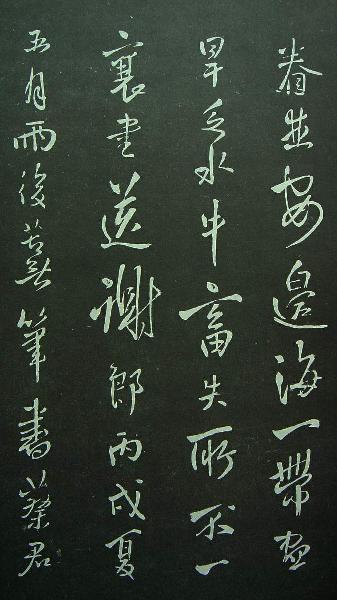 眷生安邊海一帶盡
旱乏水牛畜失所不一
襄書送謝郎丙戌夏
五月雨後蕪筆書蔡君